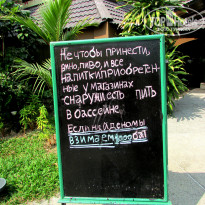 Не чтобы принести,
вино, пиво, и все
напитки приобретен-
ные у магазинах
снаружи есть пить
в бассейне
Если найдены мы
взимаем